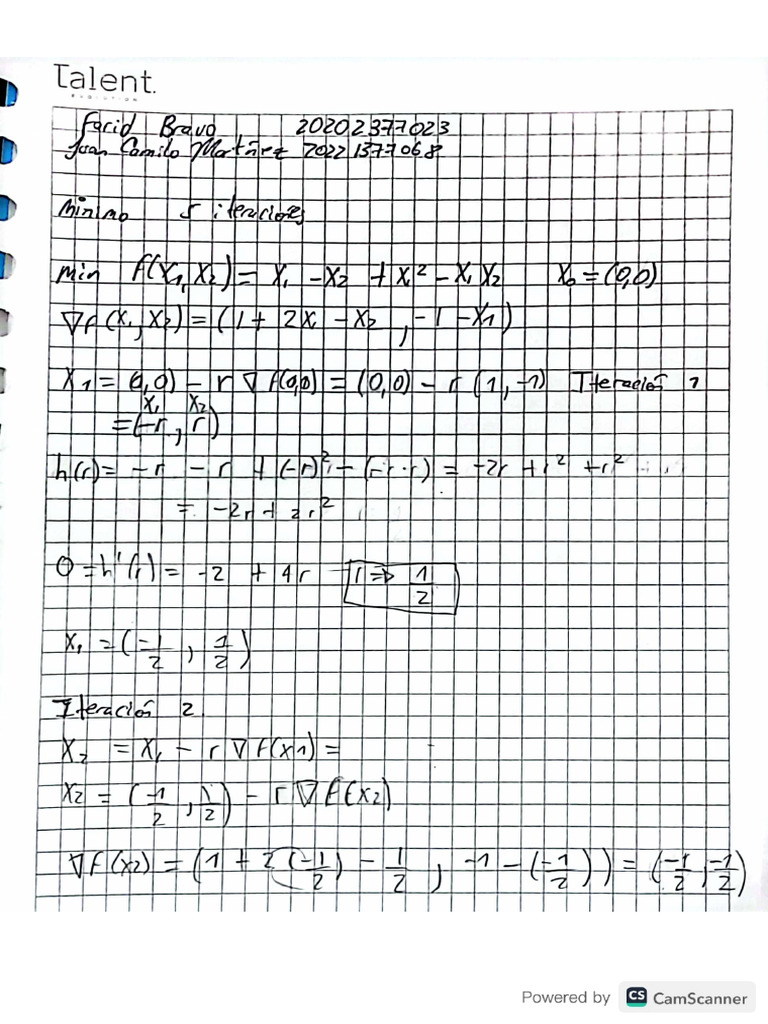 Talent.
EVOLUTION
Farid Bravo 20202377023
Joan Camilo Martínez 20221377068
Minimo 5 iteraciones
min f(x₁,x₂) = x₁ - x₂ + x₁² - x₁x₂ x₀ = (0,0)
∇f(x₁,x₂) = (1 + 2x₁ - x₂, -1 - x₁)
x1 = (0,0) - r∇f(0,0) = (0,0) - r(1,-1) Iteración 1
x₁ x₂
= (-r, r)
h(r) = -r - r + (-r)² - (-r·r) = -2r + r² + r²
= -2r + 2r²
0 = h'(r) = -2 + 4r r => 1/2
x₁ = (-1/2, 1/2)
Iteración 2
x₂ = x₁ - r∇f(x1) =
x₂ = (-1/2, 1/2) - r∇f(x₂)
∇f(x2) = (1 + 2(-1/2) - 1/2, -1 - (-1/2)) = (-1/2, -1/2)
Powered by CS CamScanner